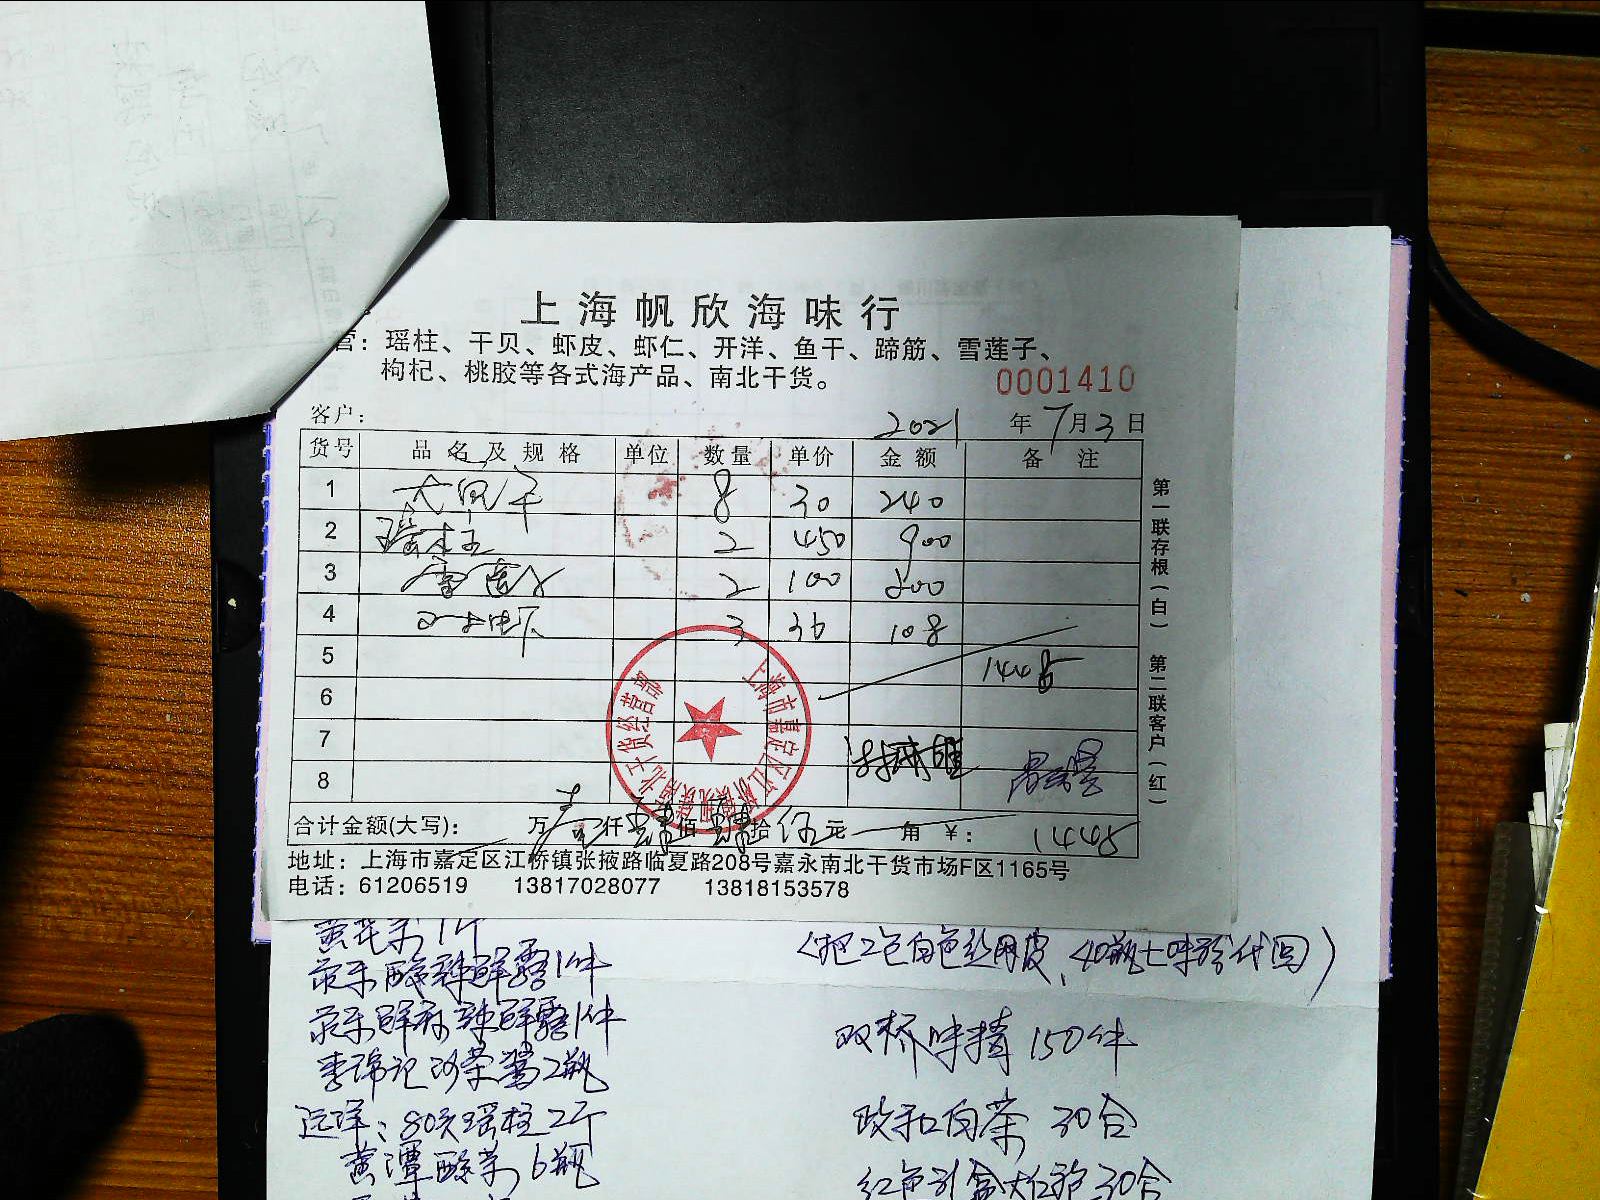 上海帆欣海味行
营：瑶柱、干贝、虾皮、虾仁、开洋、鱼干、蹄筋、雪莲子、
枸杞、桃胶等各式海产品、南北干货。
0001410
客户：
2021 年 7 月 3 日
货号 品名及规格 单位 数量 单价 金额 备注
1 8 30 240
2 瑶柱王 2 450 900
3 2 100 200
4 3 36 108
5 1448
6
7
8
合计金额(大写)： 万 仟 佰 拾 元 角 ¥： 1448
地址：上海市嘉定区江桥镇张掖路临夏路208号嘉永南北干货市场F区1165号
电话：61206519 13817028077 13818153578
第一联存根（白） 第二联客户（红）
黄花菜1斤
酸辣鲜露1件
鲜麻辣鲜露1件
李锦记沙茶酱2瓶
远洋：80头瑶柱2斤
黄潭酸菜6瓶
双桥味精150件
政和白茶 30合
30合